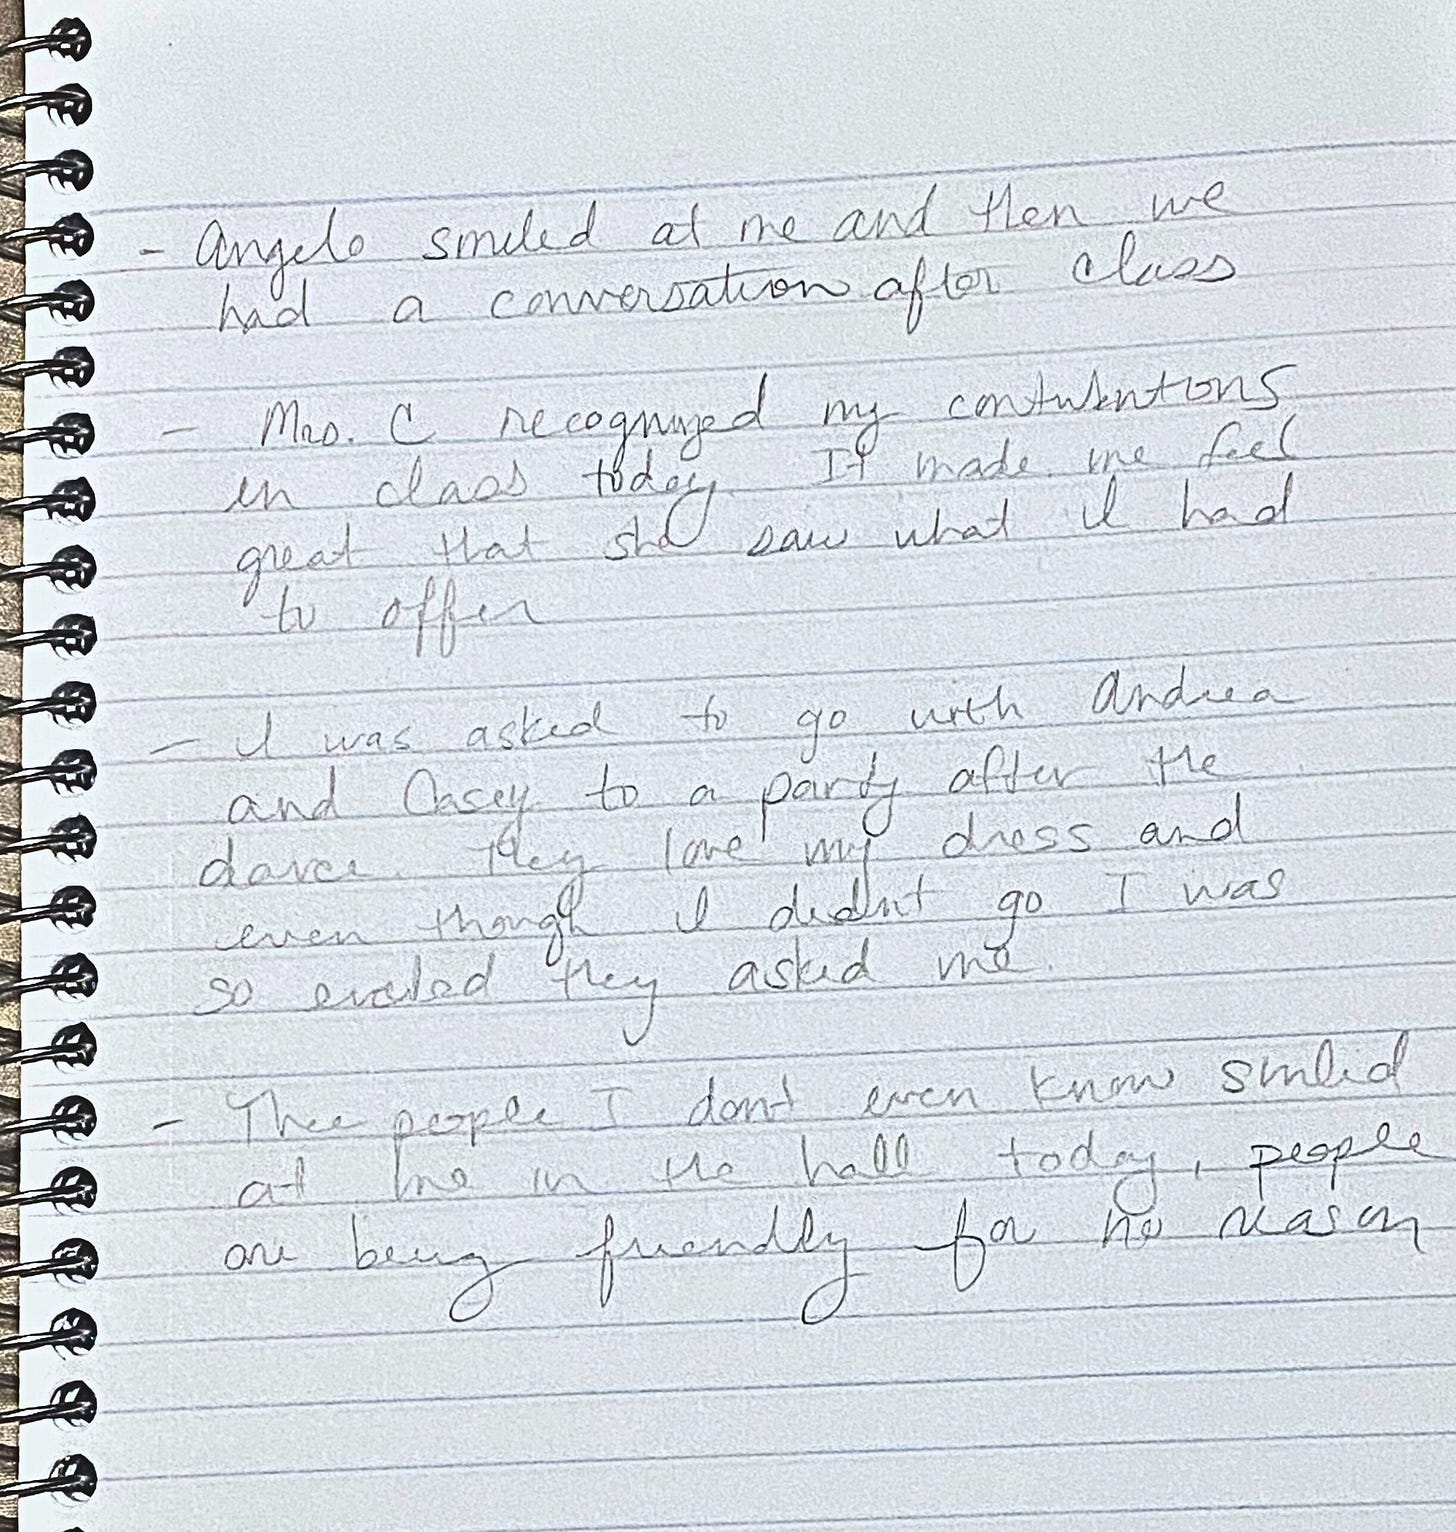 - Angelo smiled at me and then we
had a conversation after class
- Mrs. C recognized my contributions
in class today It made me feel
great that she saw what I had
to offer
- I was asked to go with Andrea
and Casey to a party after the
dance. They love my dress and
even though I didn't go I was
so excited they asked me.
- Three people I don't even know smiled
at me in the hall today, people
are being friendly for no reason